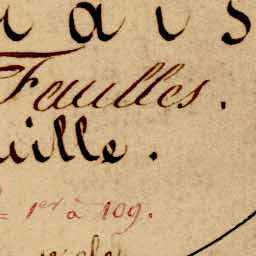 ais
Feuilles.
uille.
1er à 109.